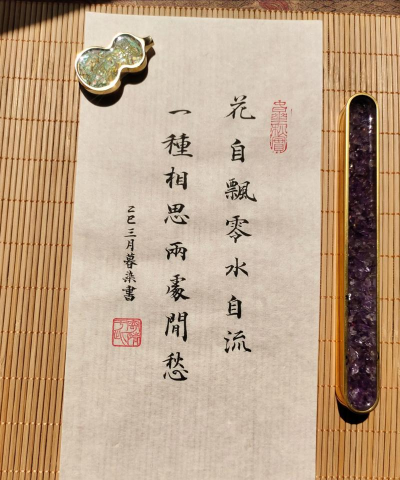 花自飄零水自流
一種相思兩處閒愁
乙巳三月暮染書